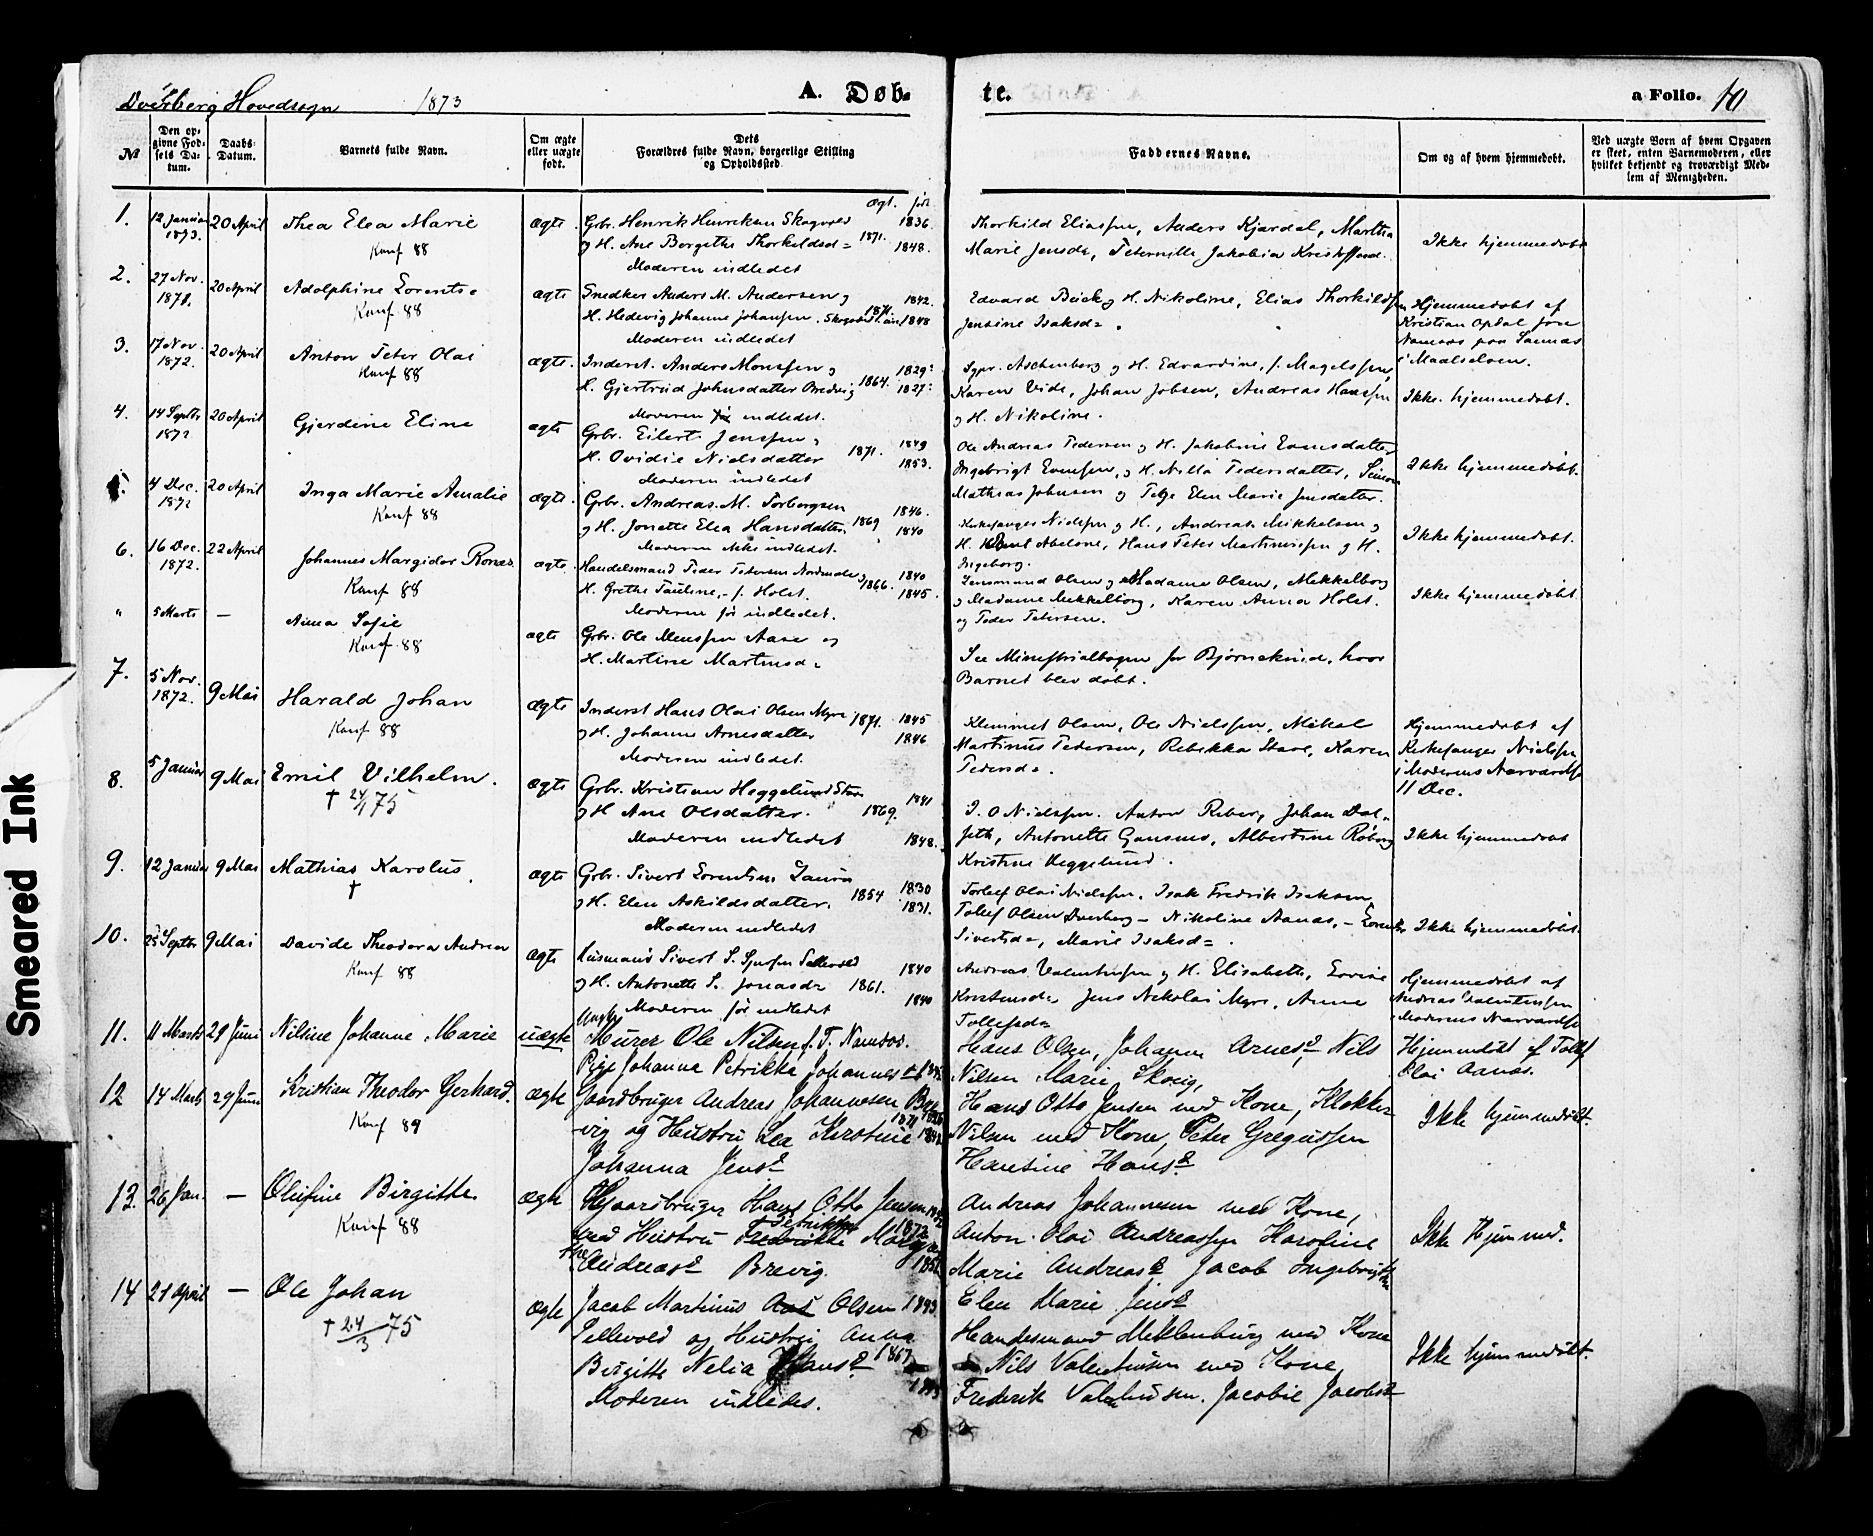 Dverberg Hovedsogn 1873 A. Døb- te. a Folio. 10
№ Den opgivne Fødsels Datum. Daabs-Datum. Barnets fulde Navn. Om ægte eller uægte født. Dets Forældres fulde Navn, borgerlige Stilling og Opholdssted Faddernes Navne. Om og af hvem hjemmedøbt. Ved uægte Børn af hvem Opgaven er skeet, enten Barnemoderen, eller hvilket bekjendt og troværdigt Medlem af Menigheden.
1. 12 Januar 1873. 20 April Thea Elea Marie ægte
Konf 88
Grbr. Henrik Henriksen Skogvold 1836
og H. Ane Bergithe Thorkildsd= 1871. 1848.
Moderen indledet
Thorkild Eliassen, Anders Kjørdal, Martha
Marie Jensd=, Peternille Jakobia Kristoffersd.
Ikke hjemmedøbt
2. 27 Nov. 1872. 20 April Adolphine Lorentse ægte
Konf 88
Snedker Anders M. Andersen og 1842.
H. Hedevig Johanne Johansen, 1871. 1848
Moderen indledet
Edvard Beck og H. Nikoline, Elias Thorkildsen
Jensine Isaksd=.
Hjemmedøbt af
Kristian Opdal fra
Namsos paa Sannæs
i Maalselven.
3. 17 Nov. 1872. 20 April Anton Peter Olai ægte.
Konf 88
Inderst. Anders Monssen og 1829
H. Gjertrud Johnsdatter Bredvig 1864. 1827
Moderen indledet.
Sgpr. Aschenberg og H. Edvardine, f. Magelssen,
Karen Vide, Johan Jobsen, Andreas Hanssen
og H. Nikoline.
Ikke hjemmedøbt.
4. 14 Septbr 1872 20 April Gjerdine Eline ægte
Grbr. Eilert Jenssen, 1849
H. Ovidie Nielsdatter 1871. 1853.
Moderen indledet
Ole Andreas Pedersen og H. Jakobine Evensdatter
Ingebrigt Evensen, og H. Nilla Pedersdatter, Simon
Mathias Johnsen og Pige Elen Marie Jensdatter.
Ikke hjemmedøbt.
5. 4 Dec. 1872 20 April Inga Marie Amalie ægte.
Konf 88
Grbr. Andreas M. Torbergsen 1846.
og H. Jonette Elea Hansdatter 1869 1840
Moderen ikke indledet.
Kirkesanger Nielssen og H., Andreas Mikkelsen og
H. Abelone, Hans Peter Martinussen og H.
Ingeborg.
Ikke hjemmedøbt.
6. 16 Dec. 1872. 22 April Johannes Margidor Rones ægte
Konf 88
Handelsmand Peder Petersen 1840
H. Grethe Pauline, f. Holst. 1866. 1845.
Moderen før indledet.
Jensmund Olsen og Madame Olsen, Mekkelborg
og Madame Mekkelborg, Karen Anna Holst.
og Peder Petersen.
Ikke hjemmedøbt.
" 5 Marts — Anna Sofie ægte
Konf 88
Grbr. Ole Monssen Aase og
H. Martine Martinsd=
See Ministrialbogen for Bjørnskind, hvor
Barnet blev døbt.
7. 5 Nov. 1872. 9 Mai Harald Johan ægte
Konf 88
Inderst Hans Olai Olsen Myre 1871. 1845
og H. Johanne Arnesdatter 1846
Moderen indledet.
Klemmet Olsen, Ole Nielssen, Mikal
Martinus Pedersen, Rebekka Stave, Karen
Pedersd=.
Hjemmedøbt af
Kirkesanger Nielssen
i Moderens Nærværelse
11 Dec.
8. 5 Januar 9 Mai Emil Vilhelm. ægte
† 24/1 75
Grbr. Kristian Heggelund Stave 1841
og H Ane Olsdatter. 1869.
Moderen indledet 1848.
J. O Nielssen. Anton Reber, Johan Dal-
seth, Antonette Gansmo, Albertine Røberg
Kristine Heggelund.
Ikke hjemmedøbt
9. 12 Januar 9 Mai Mathias Karolus. ægte
†
Grbr. Sivert Lorentsen 1830
og H. Elen Askildsdatter. 1854 1831.
Moderen indledet
Torleif Olai Nielssen, Isak Fredrik Isaksen,
Tollef Olsen Dverberg – Nikoline Aanæs, – Lorents
Sivertsd=, Marie Isaksd=.
Ikke hjemmedøbt.
10. 25 Septbr 9 Mai Davide Theodora Andrea ægte
Konf 88
Husmand Sivert S. Sjursen 1840
og H. Antonette S. Jonasd= 1861. 1840
Moderen før indledet
Andreas Valentinsen og H. Elisabeth, Lovise
Kristensd= Jens Nikolai Myre, Anne
Tollefsd=
Hjemmedøbt af
Andreas Valentinsen
i Moderens Nærværelse
11. 11 Marts 29 Juni Nilsine Johanne Marie uægte
Ungk. Murer Ole Nilsen f. T. Namsos.
Pige Johanna Petrikka Johannesd=
Hans Olsen, Johanna Arnesd Nils
Nilsen Marie Skoug,
Hjemmedøbt af Tollef
Olai Aanæs.
12 14 Marts 29 Juni Kristian Theodor Gerhard. ægte
Konf 89
Gaardbruger Andreas Johannesen Bre-
vig og Hustru Lea Kirstine 1871
Johanna Jensd
Hans Otto Jensen med Kone, Klokker
Nilsen med Kone, Peter Gregussen
Hansine Hansd
Ikke hjemmedøbt.
13. 26 Jan. — Olufine Birgitte. ægte
Konf 88
Gaardbruger Hans Otto Jensen
med Hustru Fredrikke 1872
Andreasd Brevig.
Andreas Johannesen med Kone,
Anton Olai Andreassen Karoline
Marie Andreasd Jacob Ingebrigtsen
Elen Marie Jensd
Ikke Hjemmed.
14 21 April — Ole Johan ægte
† 24/3 75
Jacob Martinus Olsen 1843
Sellevold og Hustru Anna
Birgitte Nelia Hansd 1867
Moderen indledes.
Handelsmand Meklenburg med Kone
Nils Valentinsen med Kone,
Frederik Valentinsen. Jacobie Jacobsd
Ikke hjemmedøbt.
Smeared Ink